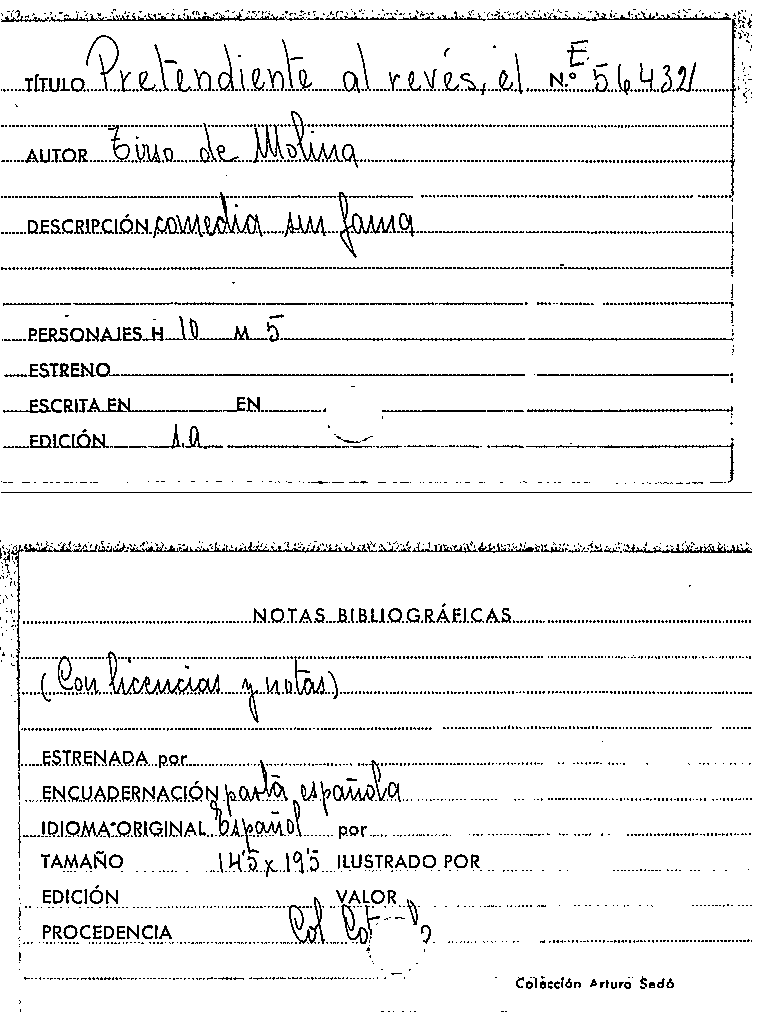 TÍTULO Pretendiente al revés, el N.º E 56432
AUTOR Tirso de Molina
DESCRIPCIÓN comedia sin fama
PERSONAJES H 10 M 5
ESTRENO
ESCRITA EN EN
EDICIÓN 1a
NOTAS BIBLIOGRÁFICAS
(Con licencias y notas)
ESTRENADA por
ENCUADERNACIÓN pasta española
IDIOMA ORIGINAL Español por
TAMAÑO 14'5 x 19'5 ILUSTRADO POR
EDICIÓN VALOR
PROCEDENCIA Col
Colección Arturo Sedó